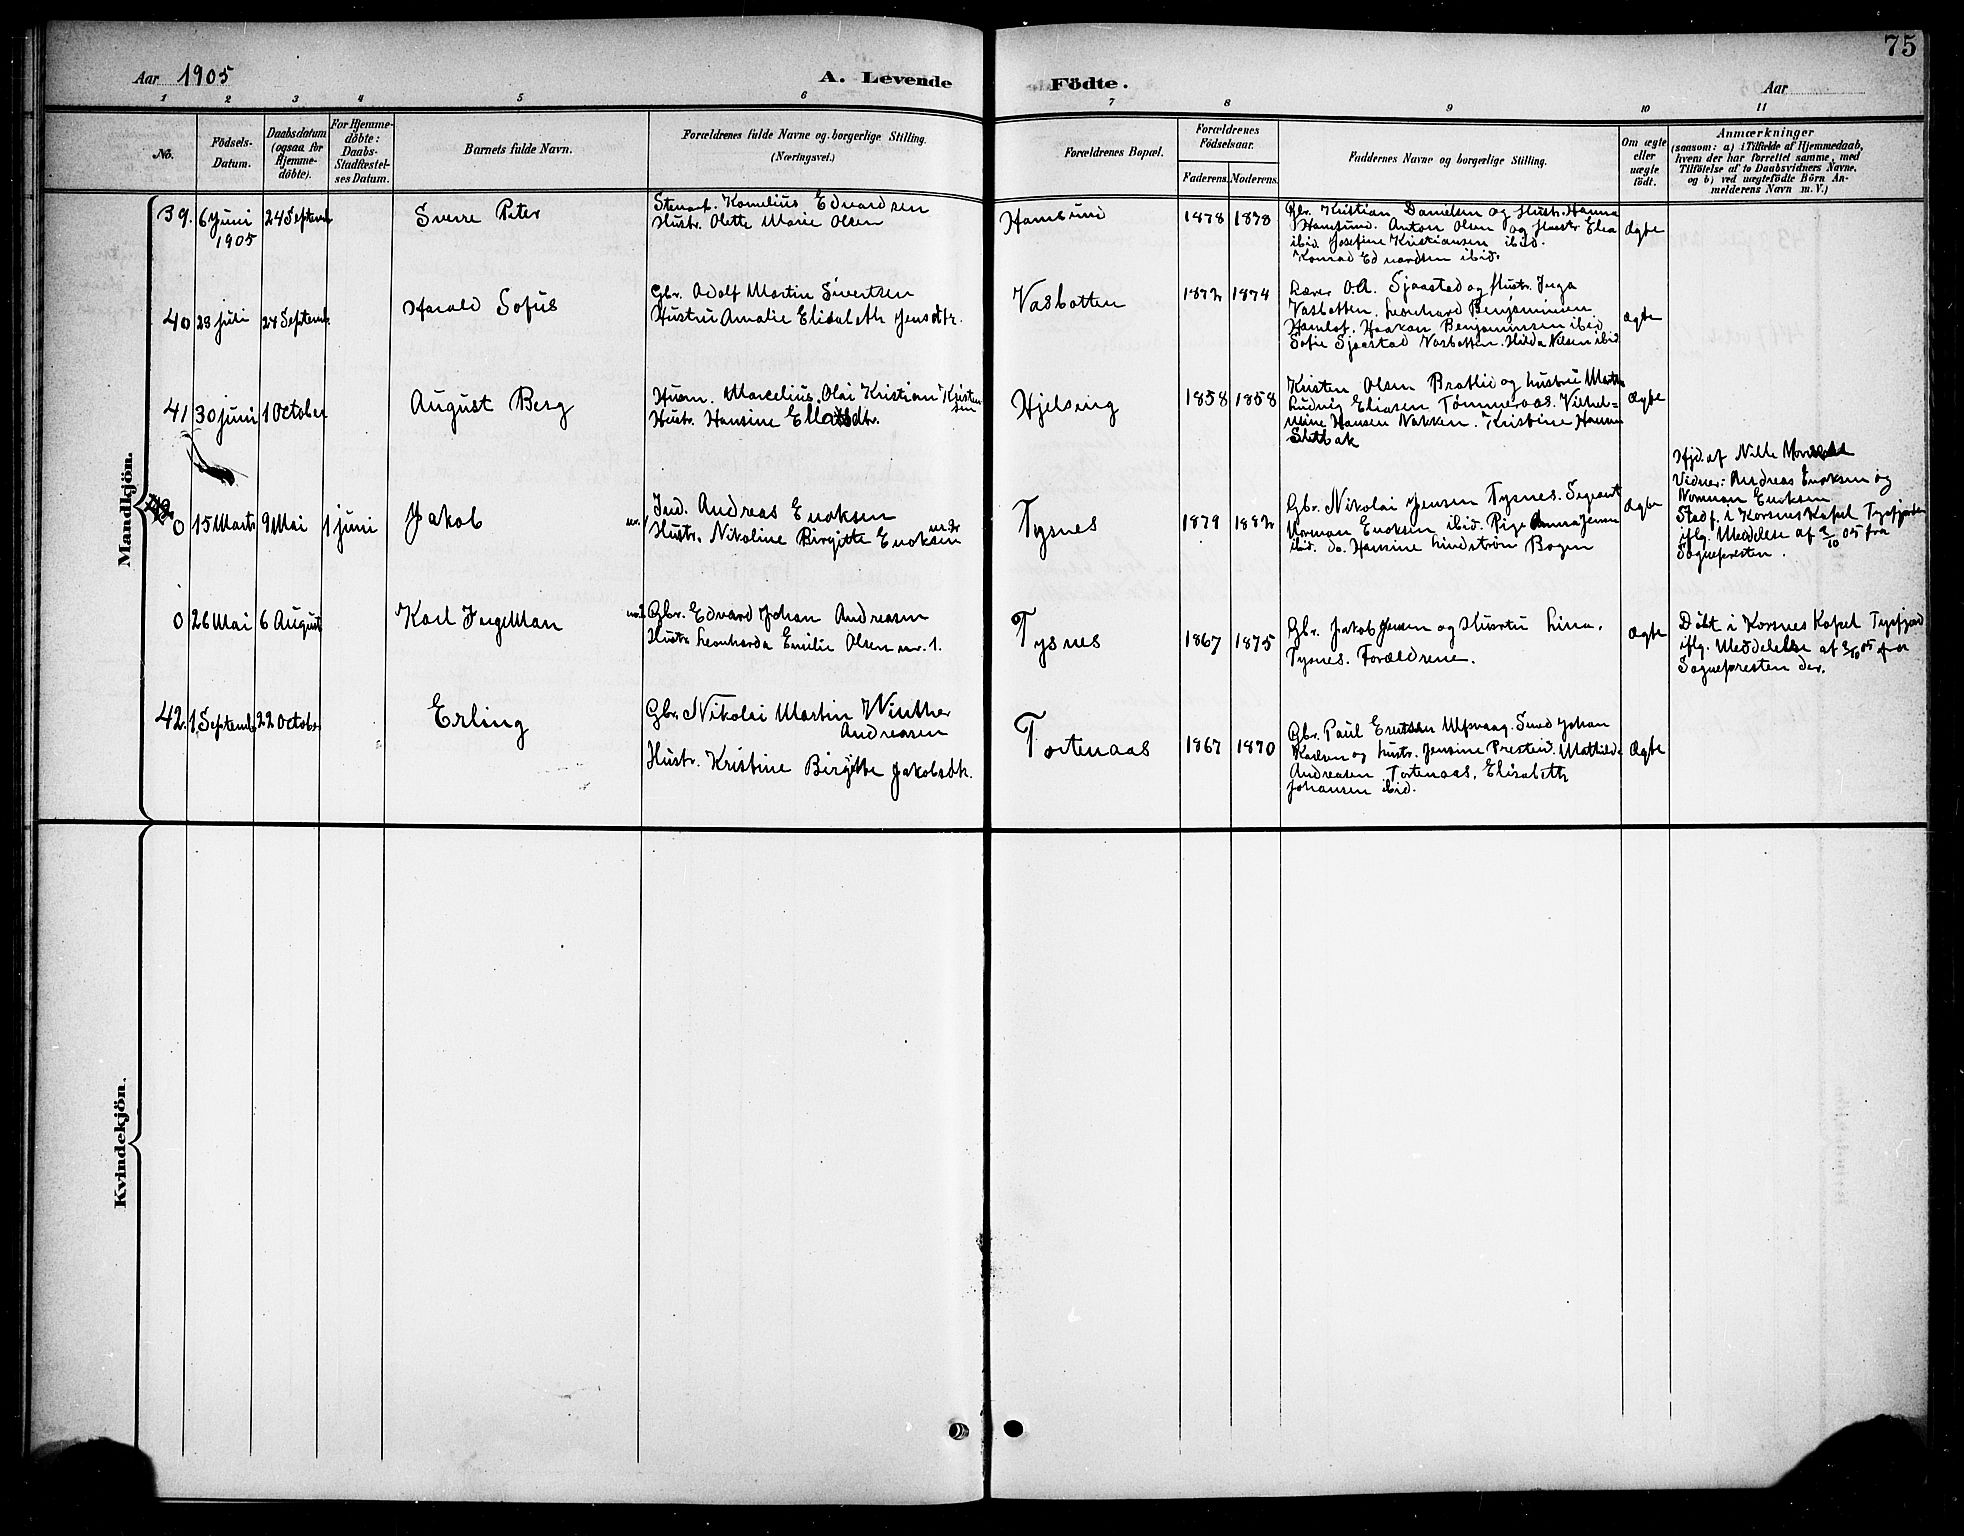 75
Aar 1905
A. Levende Födte.
Aar
1 2 3 4 5 6 7 8 9 10 11
No.
Födsels-
Datum.
Daabsdatum
(ogsaa for
Hjemme-
döbte).
For Hjemme-
döbte:
Daabs-
Stadfæstel-
ses Datum.
Barnets fulde Navn.
Forældrenes fulde Navne og borgerlige Stilling.
(Næringsvei.)
Forældrenes Bopæl.
Forældrenes
Födselsaar.
Faderens. Moderens.
Faddernes Navne og borgerlige Stilling.
Om ægte
eller
uægte
födt.
Anmærkninger
(saasom: a) i Tilfælde af Hjemmedaab,
hvem der har forrettet samme, med
Tilföielse af to Daabsvidners Navne,
og b) ved uægtefödte Börn An-
melderens Navn m. V.)
Mandkjön.
39. 6 Juni
1905
24 Septemb
Sverre Peter
Kornelius Edvardsen
Hustr. Olette Marie Olsen
Hamsund
1878 1878
Gbr. Kristian Danielsen og Hustr. Hanna
Hamsund. Anton Olsen og Hustr Elea
ibid Josefine Kristiansen ibid.
Konrad Edvardsen ibid.
Ægte
40 28 juli 24 Septemb.
Harald Sofus
Gbr. Adolf Martin Sivertsen
Hustru Amalie Elisabeth Jensdtr.
Vasbotten
1872 1874
Lærer O.A. Sjaastad og Hustr. Inga
Vasbotten. Leonhard Benjaminsen
Hamlot. Haakon Benjaminsen ibid
Sofie Sjaastad Vasbotten. Hilda Nilsen ibid
Ægte
41 30 juni 1 October
August Berg
Husm. Marcelius Olai Kristian Kristen
sen
Hustr. Hansine
Hjelseng
1858 1858
Kristen Olsen Bratlie og hustru
Ludvig Eliasen Tømmeraas. Vilhel-
mine Hansen Nakken. Kristine
Slitbak
Ægte
0 15 Marts 9 Mai 1 juni
Jakob
Ind. Andreas Enoksen
Hustr. Nikoline Birgitte Enoksen
Tysnes
1879 1882
Gbr. Nikolai Jensen Tysnes. Sergeant
Norman Enoksen ibid. Pige Anna Jensen
ibid. do. Hansine Lindstrøm Bogen
Ægte
Hjd. af Nille
Vidner: Andreas Enoksen og
Norman Enoksen
Stadf. i Korsnes Kapel Tysfjorden
iflg. Meddelelse af 2/10 05 fra
Sognepresten.
0 26 Mai 6 August
Karl IngeMan
Gbr. Edvard Johan Andreasen
Hustr Leonharda Emilie Olsen nr. 1.
Tysnes
1867 1875
Gbr. Jakob Jensen og Hustru Lina.
Tysnes. Forældrene.
Ægte
Døbt i Korsnes Kapel Tysfjord
iflg. Meddelelse af 2/10 05 fra
Sognepresten der.
42. 1 Septemb 22 Octob.
Erling
Gbr. Nikolai Martin Winther
Andreasen
Hustr. Kristine Birgitte Jakobsdtr.
Tortenaas
1867 1870
Gbr. Paul Evertsen Ulfsvaag. Johan
Karlsen og hustr. Jensine Presteid. Mathilde
Andreasen. Tortenaas. Elisabeth
Johansen ibid.
Ægte
Kvindekjön.